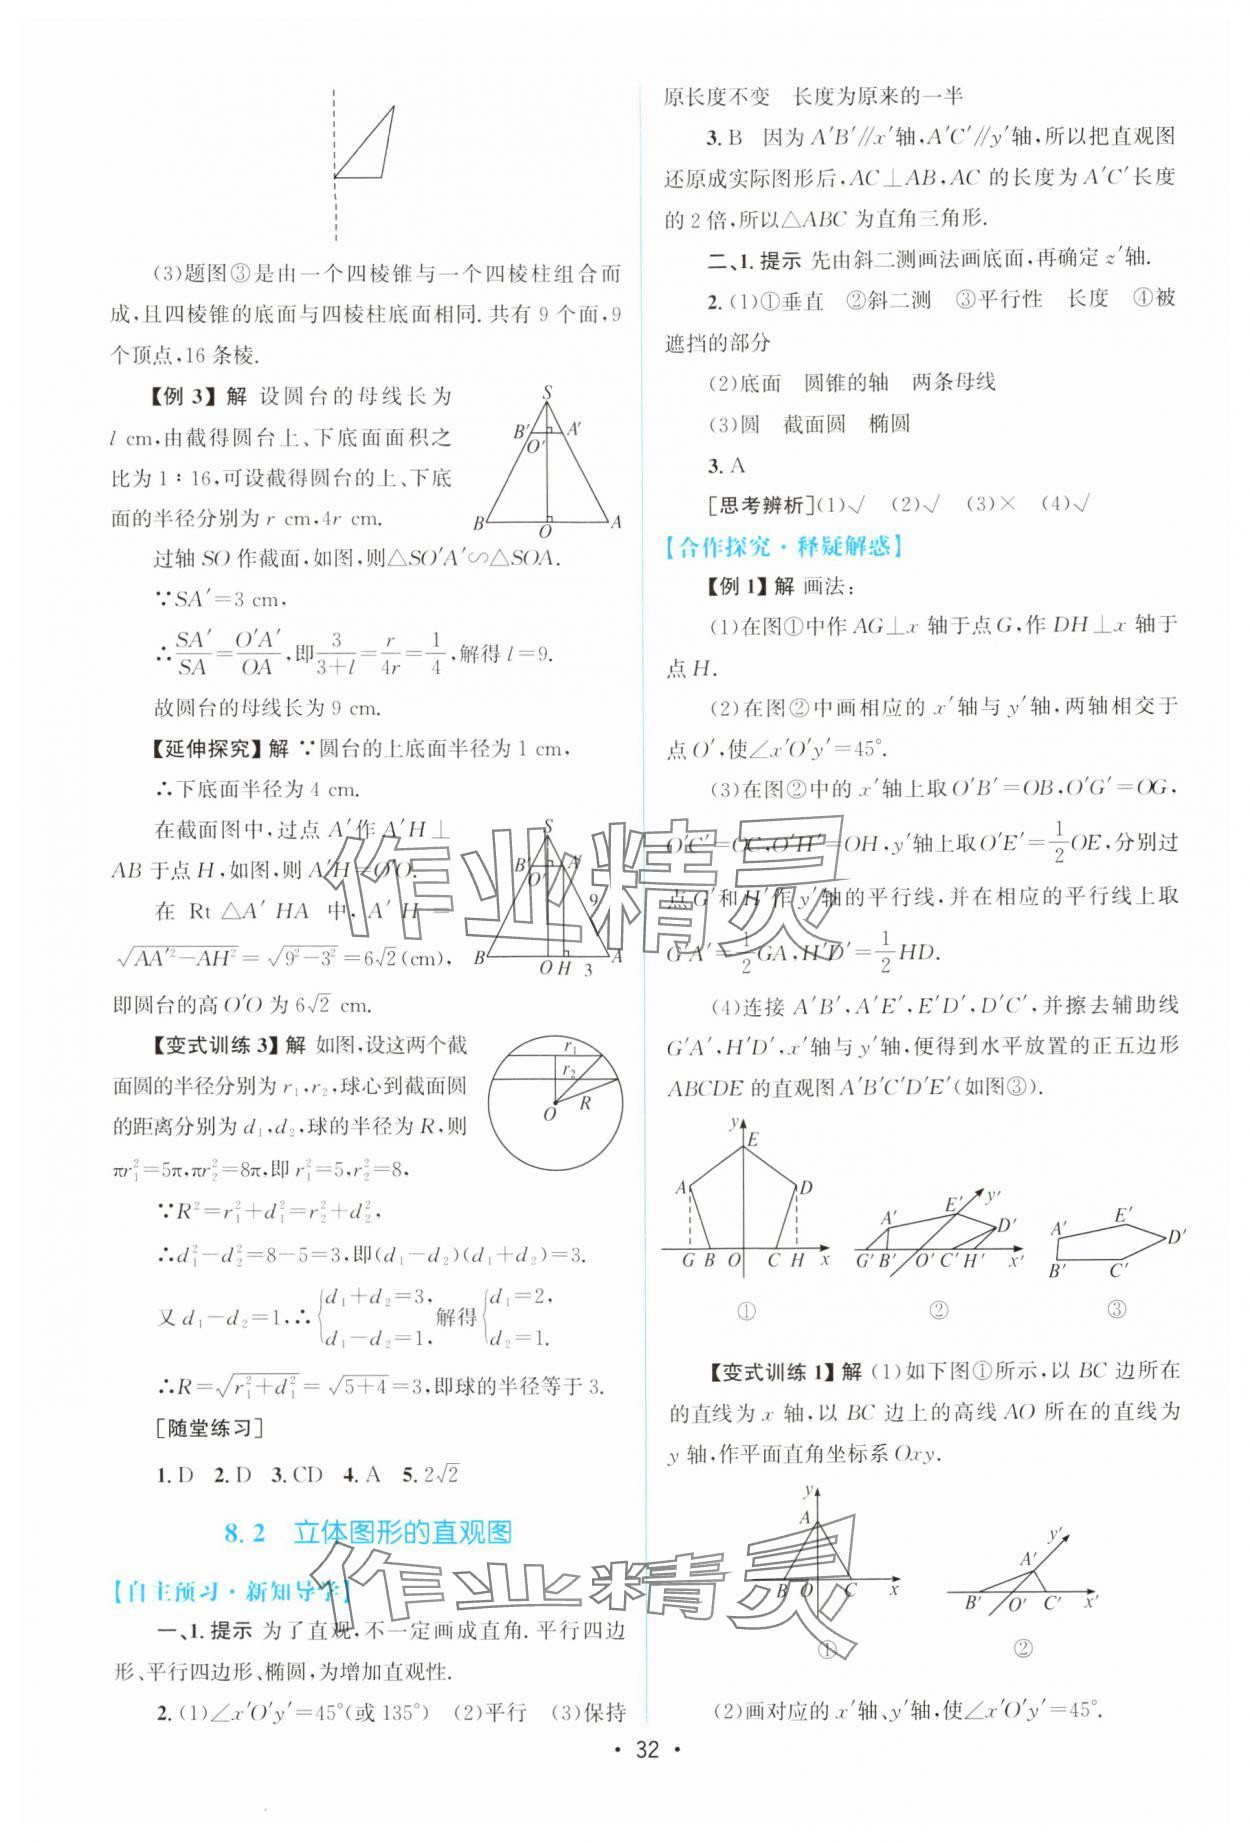 (3)题图③是由一个四棱锥与一个四棱柱组合而
成,且四棱锥的底面与四棱柱底面相同.共有 9 个面,9
个顶点,16 条棱.
【例 3】解 设圆台的母线长为
l cm,由截得圆台上、下底面面积之
比为 1∶16,可设截得圆台的上、下底
面的半径分别为 r cm,4r cm.
S
B′ A′
O′
B O A
过轴 SO 作截面,如图,则△SO′A′∽△SOA.
∵SA′=3 cm,
∴SA′/SA=O′A′/OA,即3/(3+l)=r/4r=1/4,解得 l=9.
故圆台的母线长为 9 cm.
【延伸探究】解 ∵圆台的上底面半径为 1 cm,
∴下底面半径为 4 cm.
在截面图中,过点 A′作 A′H⊥
AB 于点 H,如图,则 A′H=O′O.
在 Rt △A′HA 中,A′H=
√(AA′²−AH²)=√(9²−3²)=6√2(cm),
即圆台的高 O′O 为 6√2 cm.
S
B′ A′
O′
9
B O H 3 A
【变式训练 3】解 如图,设这两个截
面圆的半径分别为 r₁,r₂,球心到截面圆
的距离分别为 d₁,d₂,球的半径为 R,则
πr₁²=5π,πr₂²=8π,即 r₁²=5,r₂²=8,
r₁
r₂
O R
∵R²=r₁²+d₁²=r₂²+d₂²,
∴d₁²−d₂²=8−5=3,即(d₁−d₂)(d₁+d₂)=3.
又 d₁−d₂=1,∴{d₁+d₂=3, d₁−d₂=1, 解得{d₁=2, d₂=1.
∴R=√(r₁²+d₁²)=√(5+4)=3,即球的半径等于 3.
[随堂练习]
1.D 2.D 3.CD 4.A 5.2√2
8.2 立体图形的直观图
【自主预习·新知导学】
一、1.提示 为了直观,不一定画成直角.平行四边
形、平行四边形、椭圆,为增加直观性.
2.(1)∠x′O′y′=45°(或 135°) (2)平行 (3)保持
原长度不变 长度为原来的一半
3.B 因为 A′B′∥x′轴,A′C′∥y′轴,所以把直观图
还原成实际图形后,AC⊥AB,AC 的长度为 A′C′长度
的 2 倍,所以△ABC 为直角三角形.
二、1.提示 先由斜二测画法画底面,再确定 z′轴.
2.(1)①垂直 ②斜二测 ③平行性 长度 ④被
遮挡的部分
(2)底面 圆锥的轴 两条母线
(3)圆 截面圆 椭圆
3.A
[思考辨析](1)√ (2)√ (3)× (4)√
【合作探究·释疑解惑】
【例 1】解 画法:
(1)在图①中作 AG⊥x 轴于点 G,作 DH⊥x 轴于
点 H.
(2)在图②中画相应的 x′轴与 y′轴,两轴相交于
点 O′,使∠x′O′y′=45°.
(3)在图②中的 x′轴上取 O′B′=OB,O′G′=OG,
O′C′=OC,O′H′=OH,y′轴上取 O′E′=1/2OE,分别过
点 G′和 H′作 y′轴的平行线,并在相应的平行线上取
G′A′=1/2GA,H′D′=1/2HD.
(4)连接 A′B′,A′E′,E′D′,D′C′,并擦去辅助线
G′A′,H′D′,x′轴与 y′轴,便得到水平放置的正五边形
ABCDE 的直观图 A′B′C′D′E′(如图③).
y E A D G B O C H x
①
y′ E′ A′ D′ G′ B′ O′ C′ H′ x′
②
A′ E′ D′ B′ C′
③
【变式训练 1】解 (1)如下图①所示,以 BC 边所在
的直线为 x 轴,以 BC 边上的高线 AO 所在的直线为
y 轴,作平面直角坐标系 Oxy.
y A B O C x
①
y′ A′ B′ O′ C′ x′
②
(2)画对应的 x′轴、y′轴,使∠x′O′y′=45°.
· 32 ·
作业精灵
作业精灵